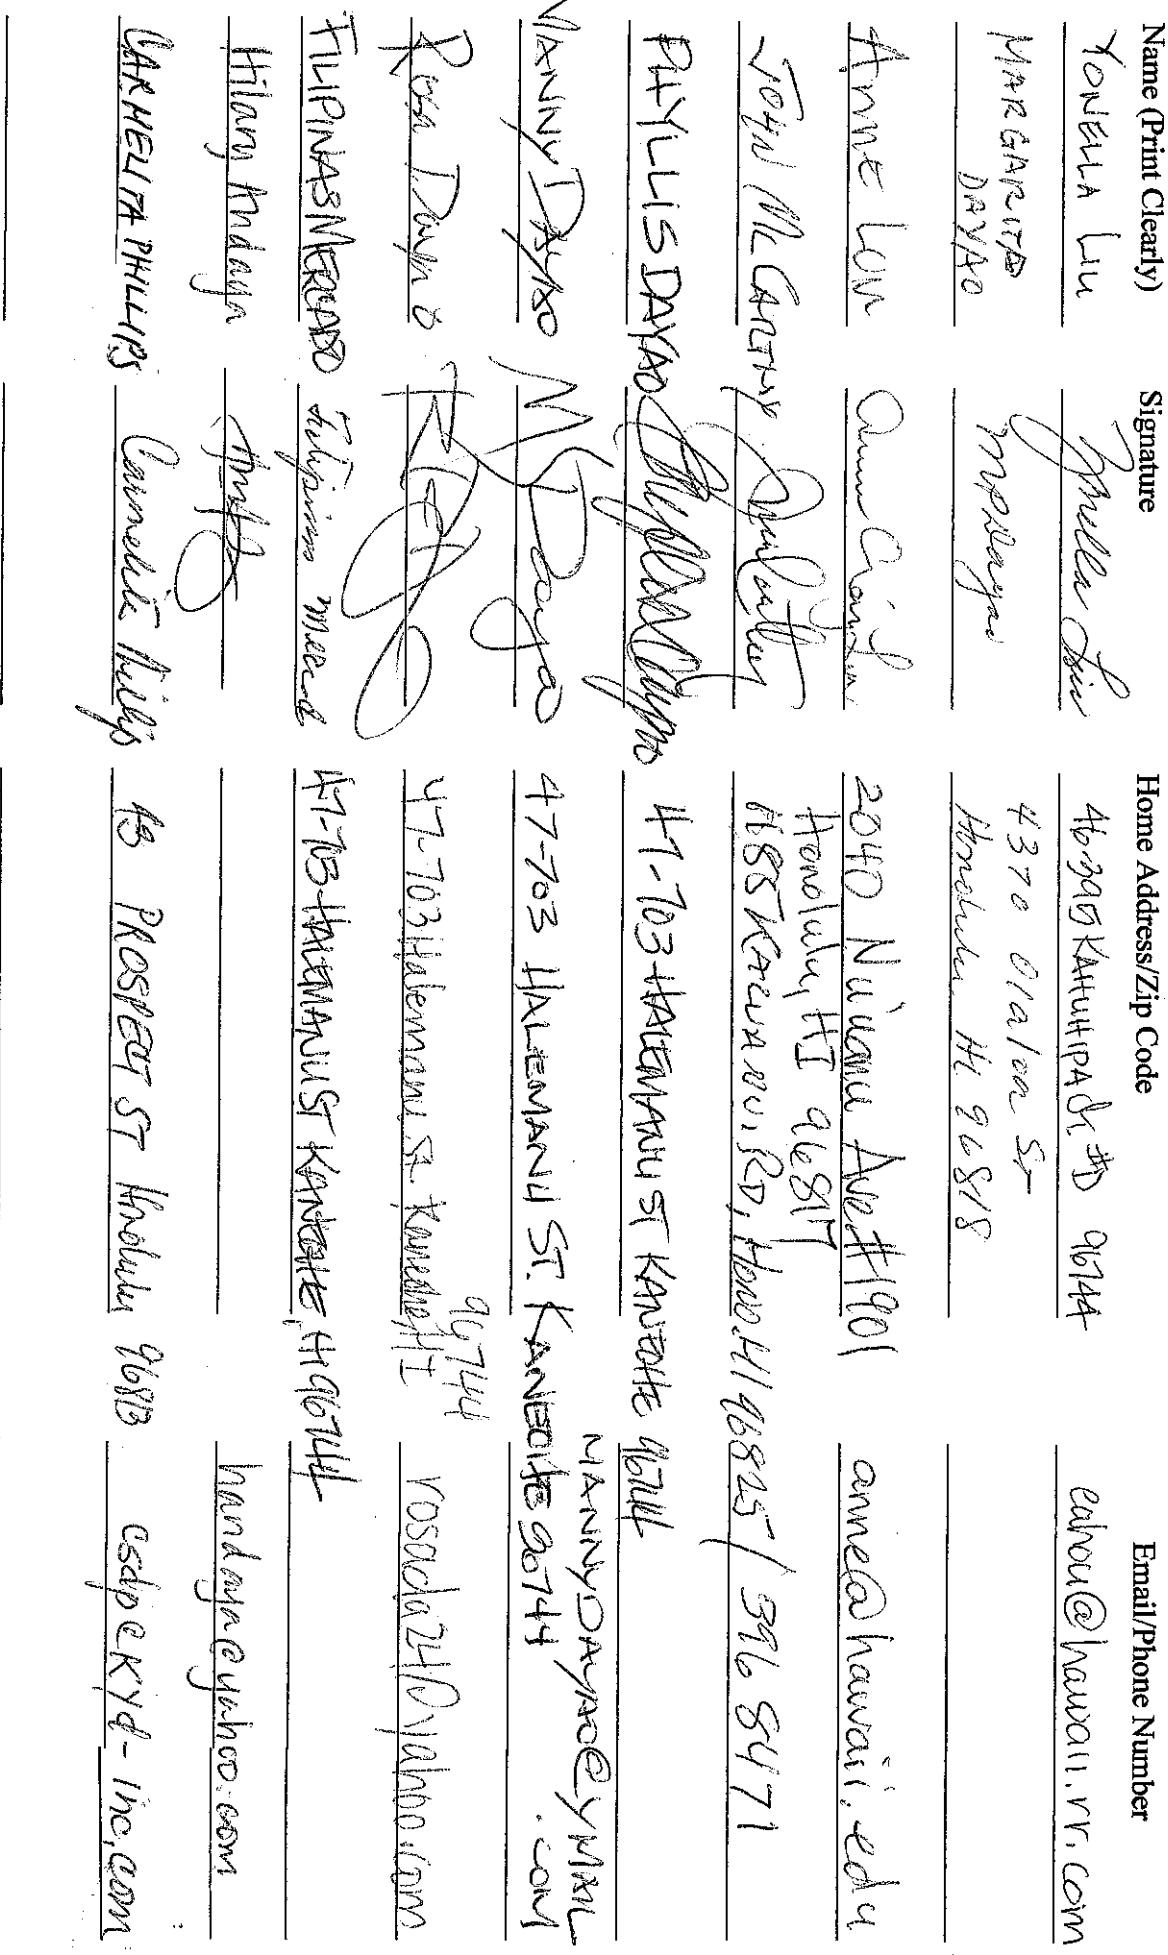 Name (Print Clearly) Signature Home Address/Zip Code Email/Phone Number
YONELLA LIU Yonella Liu 46-395 KAHUHIPA St. #D 96744 eahou@hawaii.rr.com
MARGARITA DAYAO MPDayao 4370 Olaloa St
Honolulu Hi 96818
Anne Lum 2040 Nuuanu Ave #1901 annec@hawaii.edu
Honolulu, HI 96817
JOHN McCARTHY RD, HONO. HI 96825 / 396 8471
PHYLLIS DAYAO Phyllis Dayao 47-703 HALEMANU ST KANEOHE 96744
MANNY DAYAO M Dayao 47-703 HALEMANU ST. KANEOHE 96744 MANNYDAYAO@YMAIL
.COM
Rosa Dayao 47-703 Halemanu St. Kaneohe, HI
96744
FILIPINAS MERCADO Filipinas 47-703 HALEMANU ST KANEOHE, HI 96744
Hilary Andaya handaya@yahoo.com
CARMELITA PHILLIPS Carmelita Phillips PROSPECT ST Honolulu 96813 csdp@kyd-inc.com